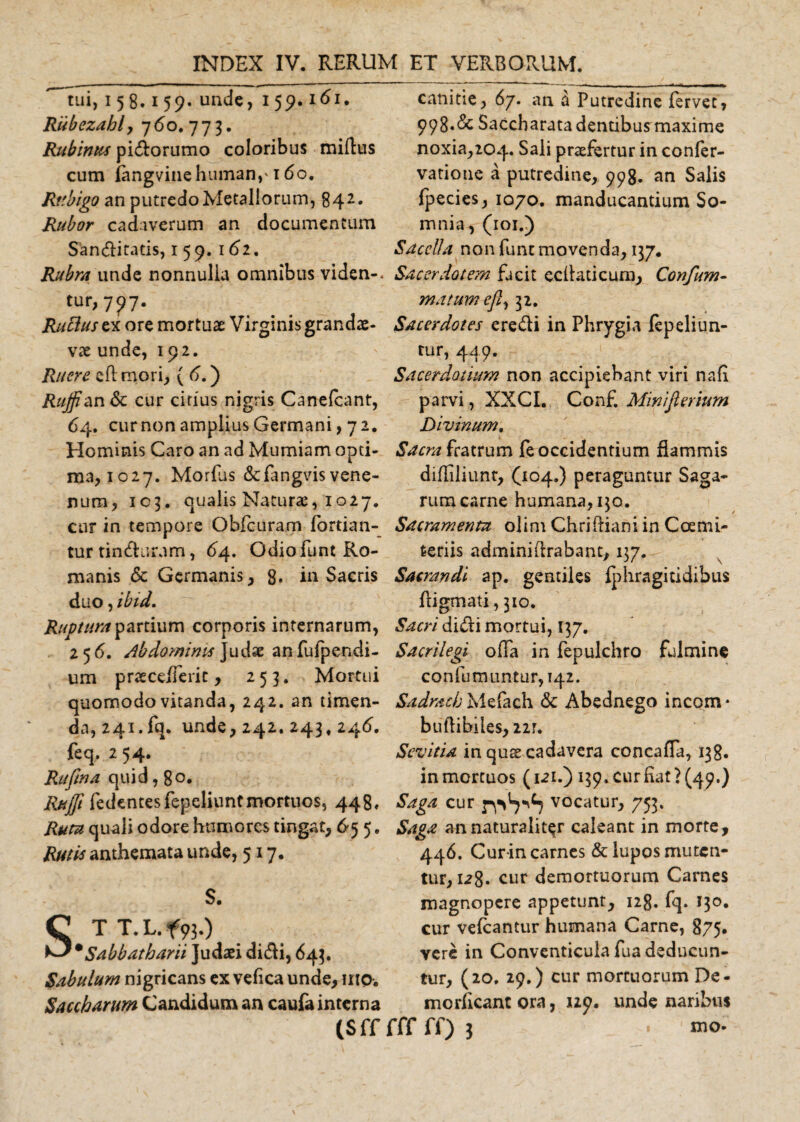 INDEX IV. RERUM ET VERBORUM.
tui, 158. 159. unde, 159. 161.
Rübezahl, 760. 773.
Rubinus pictorumo coloribus miſtus
cum ſangvine human, 160.
Rubigo an putredo Metallorum, 842.
Rubor cadaverum an documentum
Sanctitatis, 159. 162.
Rubra unde nonnulla omnibus viden-
tur, 797.
Ructus ex ore mortuæ Virginis grandæ-
væ unde, 192.
Ruere eſt mori, (6.)
Ruffi an & cur citius nigris Caneſcant,
64. cur non amplius Germani, 72.
Hominis Caro an ad Mumiam opti-
ma, 1027. Morſus & ſangvis vene-
num, 103. qualis Naturæ, 1027.
cur in tempore Obſcuram ſortian-
tur tincturam, 64. Odio ſunt Ro-
manis & Germanis, 8. in Sacris
duo, ibid.
Ruptura partium corporis internarum,
256. Abdominis Judæ an ſuſpendi-
um præceſſerit, 253. Mortui
quomodo vitanda, 242. an timen-
da, 241. ſq. unde, 242. 243, 246.
ſeq. 254.
Rufina quid, 80.
Ruſſi ſedentes ſepeliunt mortuos, 448.
Ruta quali odore humores tingat, 655.
Rutis anthemata unde, 517.
S.
S T T. L. (93.)
Sabbatharii Judæi dicti, 643.
Sabulum nigricans ex veſica unde, 1110.
Saccharum Candidum an cauſa interna
canitie, 67. an à Putredine ſervet,
998. & Saccharata dentibus maxime
noxia, 204. Sali præfertur in conſer-
vatione à putredine, 998. an Salis
ſpecies, 1070. manducantium So-
mnia, (101.)
Sacella non ſunt movenda, 137.
Sacerdotem facit ecſtaticum, Conſum-
matum eſt, 32.
Sacerdotes erecti in Phrygia ſepeliun-
tur, 449.
Sacerdotium non accipiebant viri naſi
parvi, XXCI. Conf. Miniſterium
Divinum.
Sacra fratrum ſe occidentium flammis
diſſiliunt, (104.) peraguntur Saga-
rum carne humana, 130.
Sacramenta olim Chriſtiani in Cœmi-
teriis adminiſtrabant, 137.
Sacrandi ap. gentiles ſphragitidibus
ſtigmati, 310.
Sacri dicti mortui, 137.
Sacrilegi oſſa in ſepulchro fulmine
conſumuntur, 142.
Sadrach Meſach & Abednego incom-
buſtibiles, 221.
Sævitia in quæ cadavera concaſſa, 138.
in mortuos (121.) 139. cur fiat? (49.)
Saga cur vocatur, 753.
Sagæ an naturaliter caleant in morte,
446. Cur in carnes & lupos muten-
tur, 128. cur demortuorum Carnes
magnopere appetunt, 128. ſq. 130.
cur veſcantur humana Carne, 875.
verè in Conventicula ſua deducun-
tur, (20. 29.) cur mortuorum De-
morſicant ora, 129. unde naribus
(Sſſ ſſſ ſſ) 3
mo-